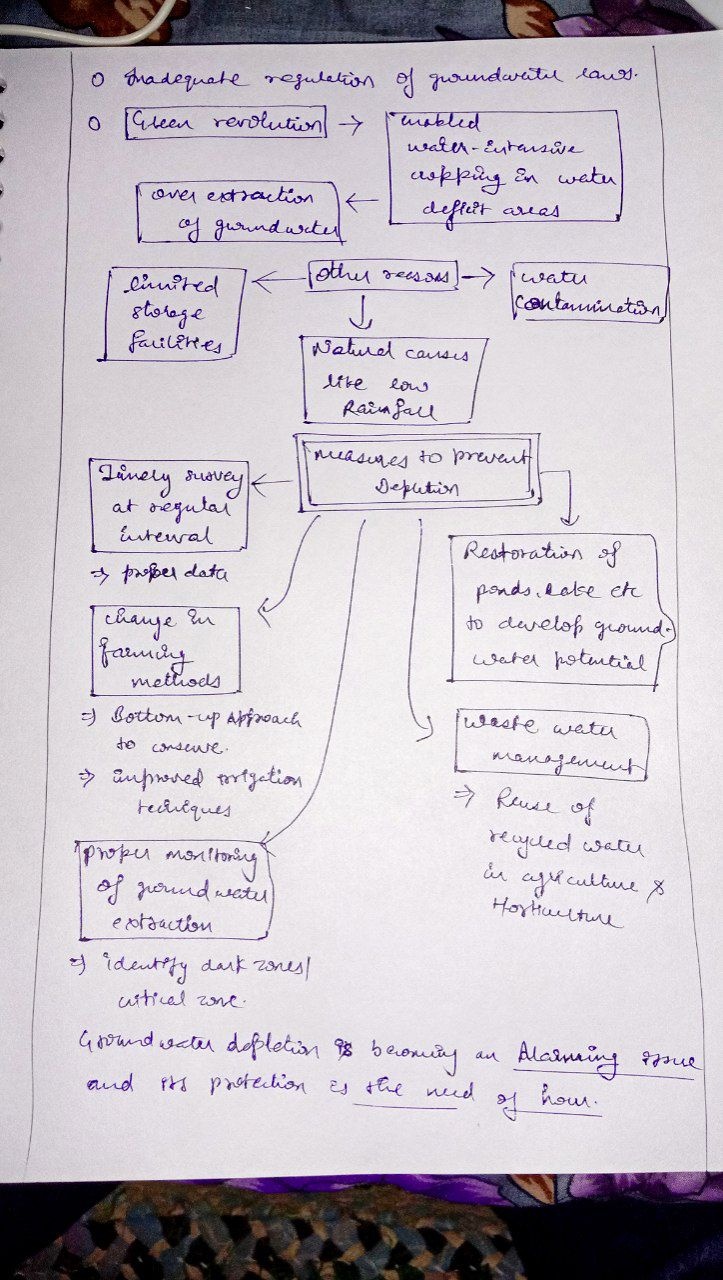 o Inadequate regulation of groundwater laws.
o Green revolution →
enabled
water-intensive
cropping in water
deficit areas
←
over extraction
of groundwater
other reasons
← →
limited
storage
facilities
water
contamination
Natural causes
like low
Rainfall
Measures to prevent
Depletion
Timely survey
at regular
interval
⇒ proper data
Restoration of
ponds, Lake etc
to develop ground-
water potential
change in
farming
methods
⇒ Bottom-up Approach
to conserve.
⇒ improved irrigation
techniques
waste water
management
⇒ Reuse of
recycled water
in agriculture &
Horticulture
proper monitoring
of groundwater
extraction
⇒ identify dark zones/
critical zone.
Groundwater depletion is becoming an Alarming issue
and its protection is the need of hour.